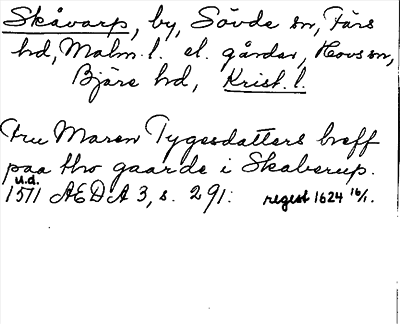 Skåvarp, by, Sövde sn, Färs
hd, Malm. l. el. gårdar, Hovs sn,
Bjäre hd, Krist. l.
Fru Maren Tygesdatters breff
paa thro gaarde i Skaberup.
u.d.
1571 AEDA 3, s. 291. regest 1624 16/1.